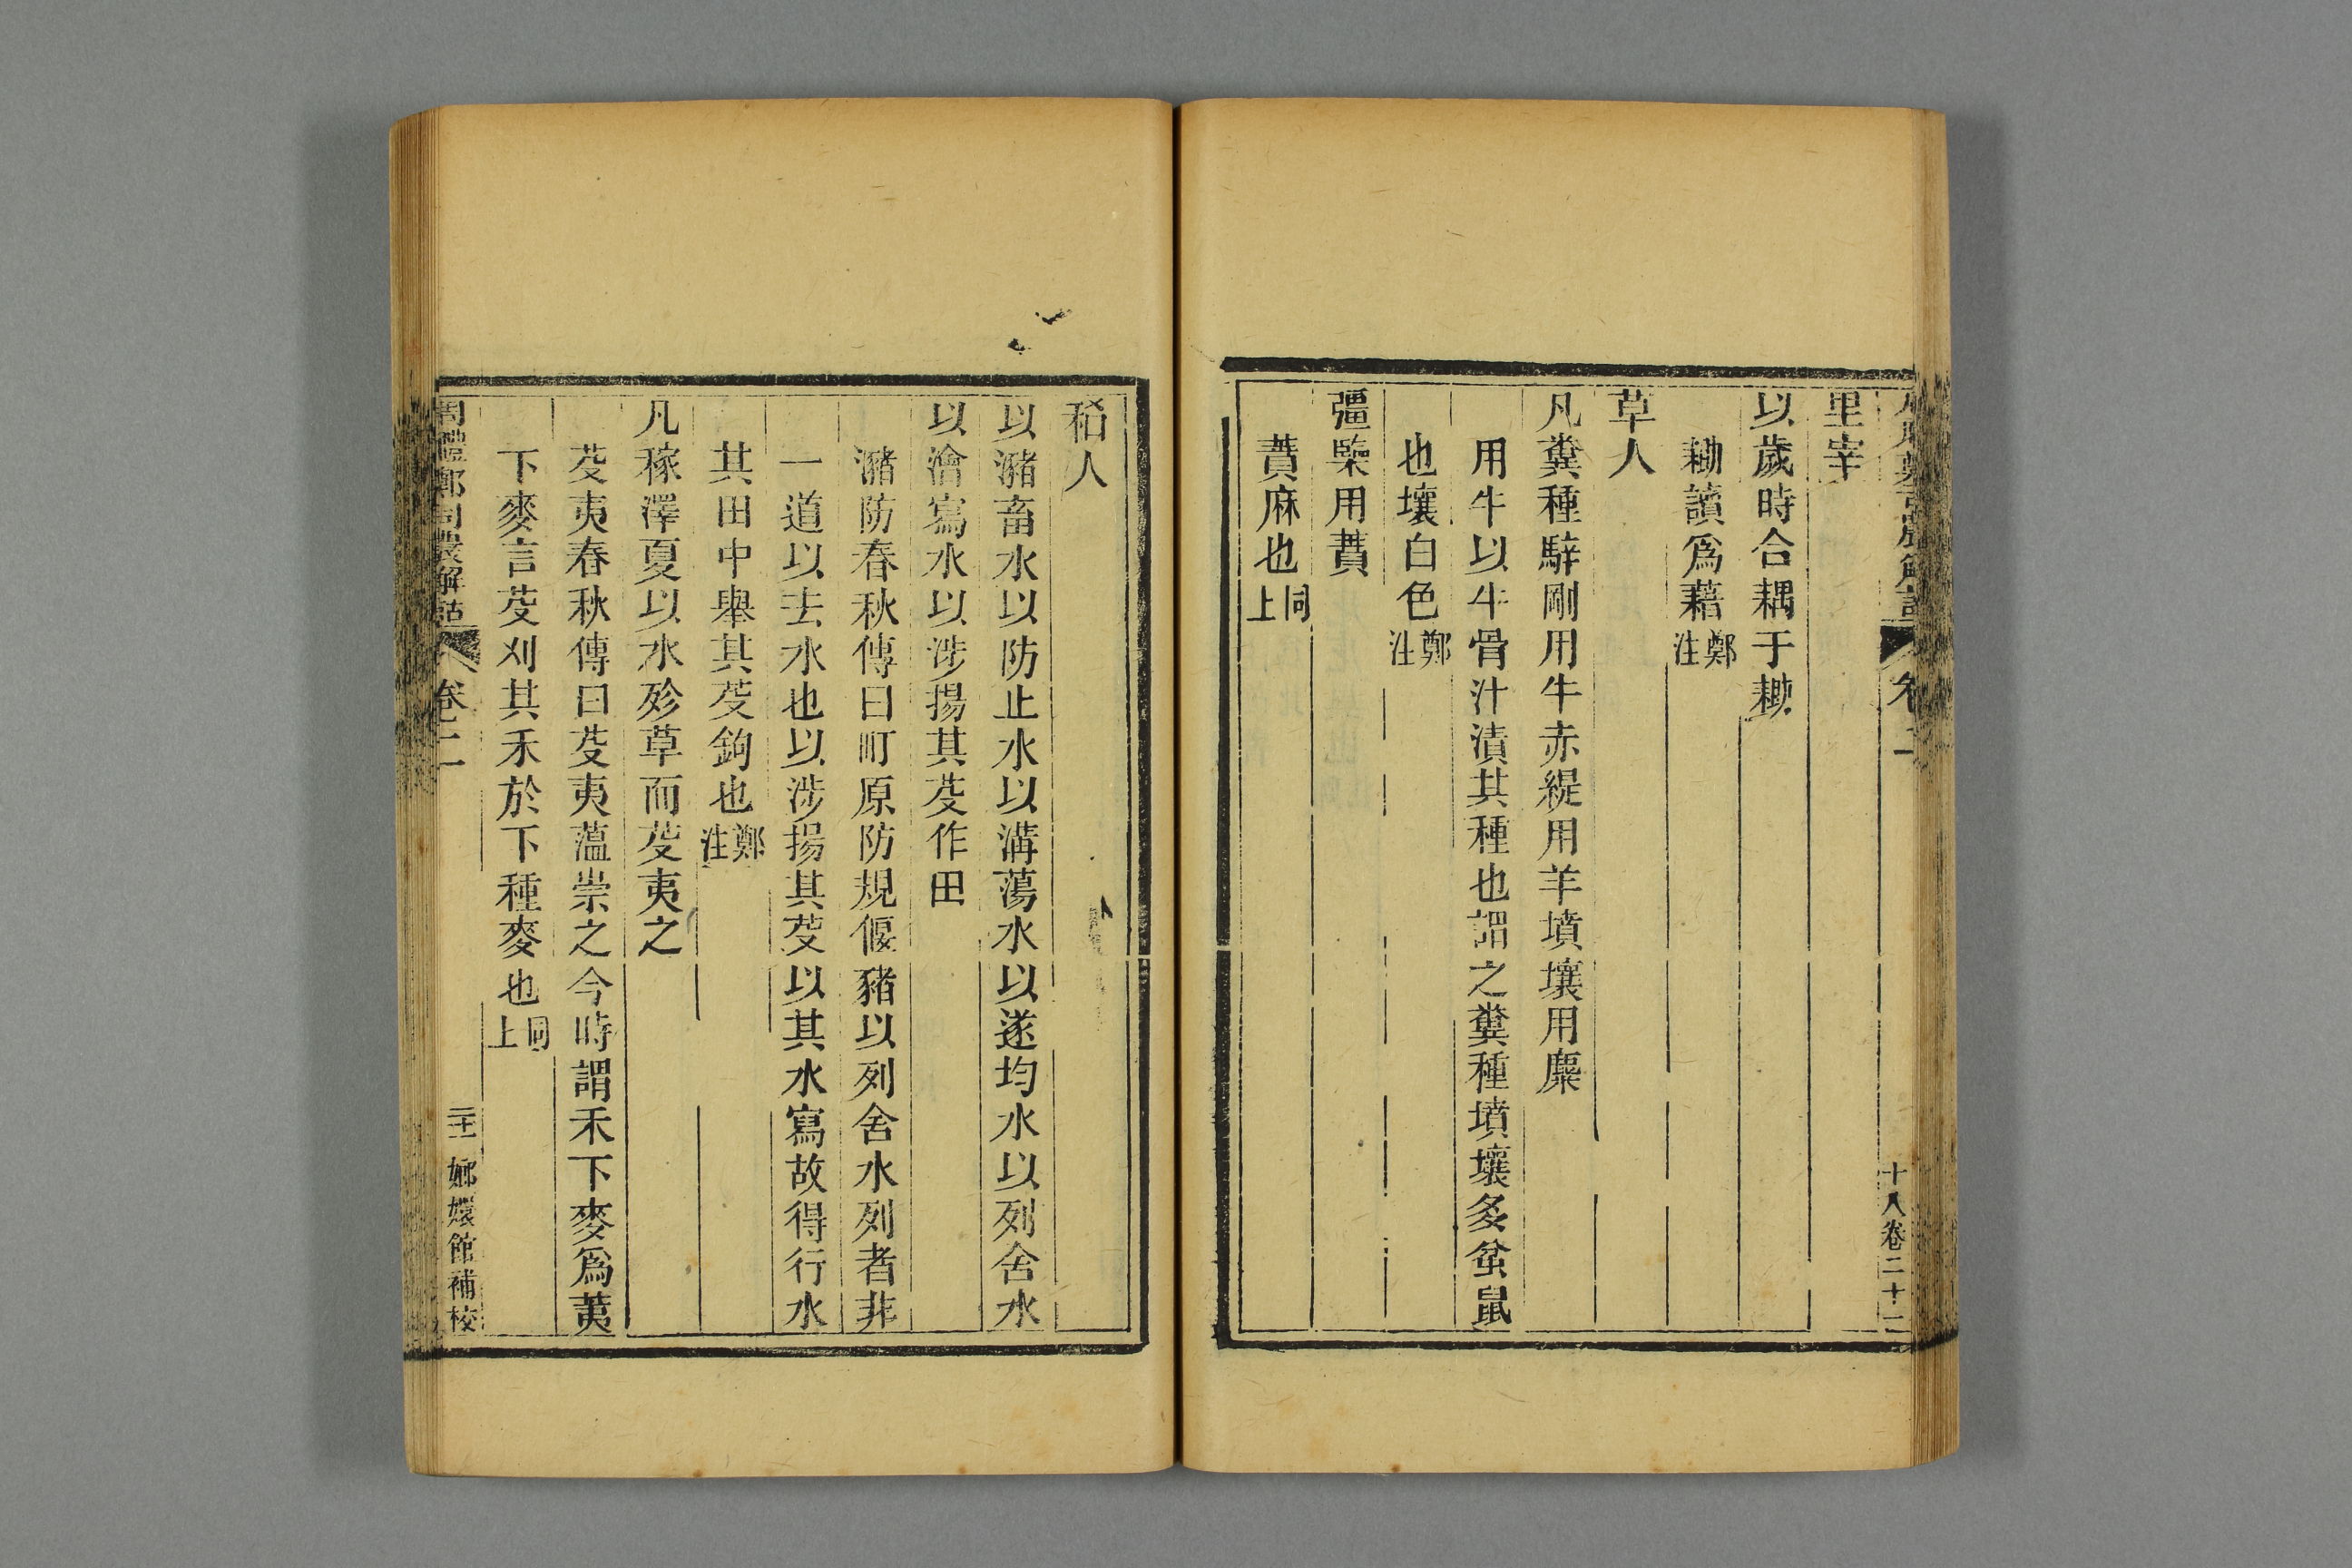 里宰
以歲時合耦于耡
耡讀爲藉鄭注
草人
凡糞種騂剛用牛赤緹用羊墳壤用麋
用牛以牛骨汁漬其種也謂之糞種墳壤多蚠鼠
也壤白色鄭注
彊㯺用蕡
蕡麻也同上
十八卷二十二
稻人
以瀦畜水以防止水以溝蕩水以遂均水以列舍水
以澮寫水以涉揚其芟作田
瀦防春秋傳曰町原防規偃豬以列舍水列者非
一道以去水也以涉揚其芟以其水寫故得行水
其田中舉其芟鉤也鄭注
凡稼澤夏以水殄草而芟夷之
芟夷春秋傳曰芟夷薀崇之今時謂禾下麥爲荑
下麥言芟刈其禾於下種麥也同上
周禮鄭司農解詁
卷二
嫏嬛館補校